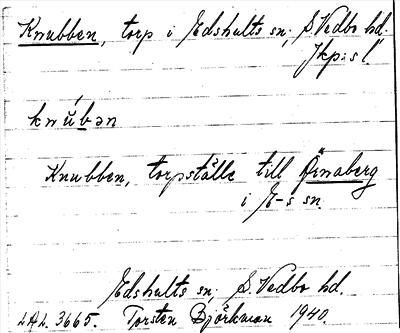 Knubben, torp i Edshults sn, S. Vedbo hd.
Jkp:s l.
knúbən
Knubben, torpställe till Örnaberg
i E-s sn.
Edshults sn, S. Vedbo hd.
LAL. 3665. Torsten Björkman 1940.